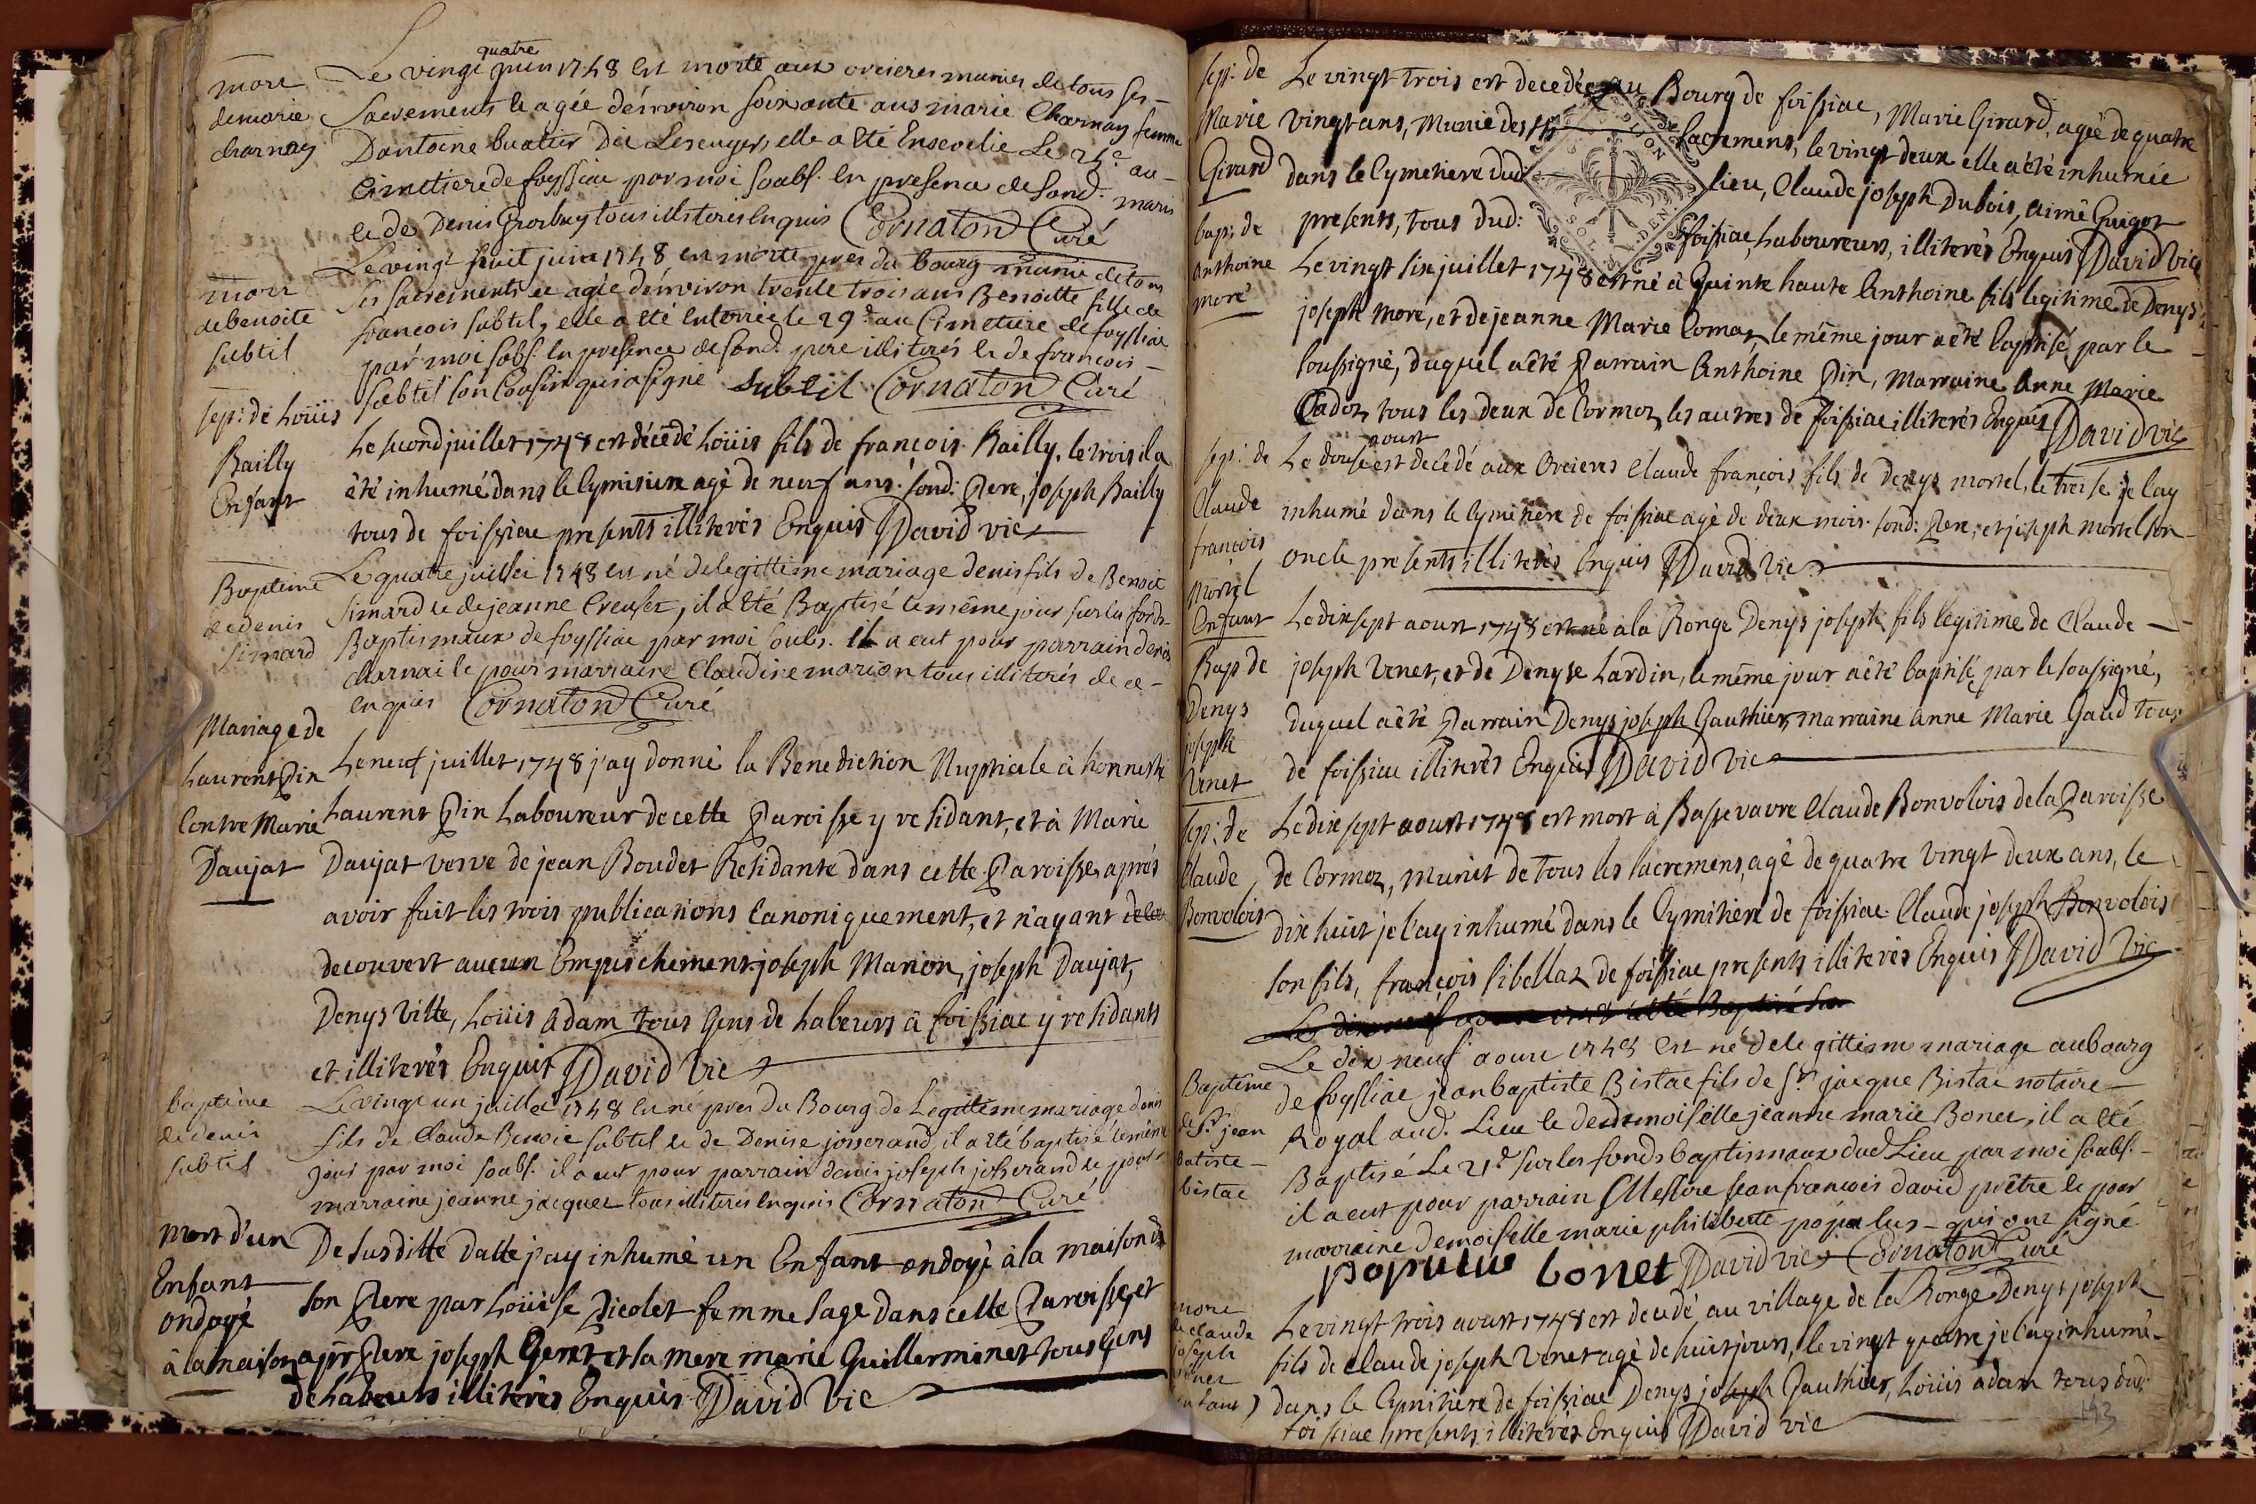 mort
de marie
charnay
Le vingt quatre juin 1748 est morte aux orcieres munies de tous ses
sacrements et agée d'environ soixante ans marie Charnay femme
D'antoine buatier Dit elle a été Ensevelie Le 25e au
Cimetiere de foyssiac par moi soubs. en presence de sond. maris
et de Denis Grosbuy tous illiterés Enquis Cornaton Curé
mort
de benoite
subtil
Le vingt huit juin 1748 est morte pres du bourg munie de tous
les sacrements et agée d'environ trente trois ans Benoitte fille de
francois subtil, elle a été enterrée le 29e au Cimetiere de foyssiac
par moi sobs. en presence de sond. pere illiterés et de francois
subtil son Cousin qui a signé subtil Cornaton Curé
sep: de Loüis
Bailly
Enfant
Le second juillet 1748 est décédé Loüis fils de françois Bailly, le trois il a
êté inhumé dans le Cymitiere agé de neuf ans. sond: Pere, joseph Bailly
tous de foissiac presents illiterés Enquis David vic
Baptême
de denis
simard
Le quatre juillet 1748 est né de legittime mariage denis fils de Benoit
simard et de jeanne Creuset, il a été Baptisé le même jour sur les fonds
Baptismaux de foyssiac par moi soubs. il a eut pour parrain denis
charnai et pour marraine Claudine marion tous illiterés de ce
enquis Cornaton Curé
Mariage de
Laurent Pin
Contre Marie
Daujat
Le neuf juillet 1748 j'ay donné la Benediction Nuptiale à honneste
Laurent Pin Laboureur de cette Paroisse y residant, et à Marie
Daujat veuve de jean Boudet Residante dans cette Paroisse, aprés
avoir fait les trois publications Canoniquement, et n'ayant
decouvert aucun Empeschement. joseph Marion, joseph Daujat,
Denys Vitte, Loüis Adam tous Gens de Labeurs à foissiac y residants
et illiterés Enquis David Vic
baptême
de denis
subtil
Le vingt un juillet 1748 est né pres du Bourg de Legittime mariage denis
fils de Claude Benoit subtil et de Denise josserand, il a été baptisé le même
jour par moi soubs. il a eut pour parrain denis joseph josserand et pour
marraine jeanne jacquet tous illiterés enquis Cornaton Curé
Mort d'un
Enfant
ondoyé
à la maison
De susditte datte j'ay inhumé un Enfant ondoyé à la maison de
son Pere par Loüise Picolet femme sage dans cette Paroisse, et
a pr Pere joseph Geret et sa mere marie Guillerminet tous Gens
de Labeurs illiterés Enquis David Vic
sep: de
Marie
Girard
Le vingt trois est decedée au Bourg de foissiac, Marie Girard, agée de quatre
vingt ans, Munie des sacrements, le vingt deux elle a été inhumée
dans le Cymetiere dud: lieu, Claude joseph Dubois, aimé Guigot
presents, tous dud: foissiac, Laboureurs, illiterés Enquis David Vic
bap: de
Anthoine
moré
Le vingt six juillet 1748 est né à Quinte haute Anthoine fils legitime de Denys
joseph moré, et de jeanne Marie Comas, le même jour a été baptisé par le
soussigné, duquel a été Parrain Anthoine Pin, Marraine Anne Marie
Cadoz tous les deux de Cormoz, les autres de foissiac illiterés Enquis David vic
sep: de
Claude
françois
Mortel
Enfant
Le douse aoust est decedé aux Orcieres Claude françois fils de Denys mortel, le treise je l'ay
inhumé dans le Cymetiere de foissiac agé de deux mois. sond: Pere, et joseph mortel son
oncle presents illiterés Enquis David Vic
Bap de
Denys
joseph
Venet
Le dix sept aoust 1748 est né à la Ronge Denys joseph fils legitime de Claude
joseph Venet, et de Denyse Lardin, le même jour a été baptisé par le soussigné,
duquel a êté Parrain Denys joseph Gauthier, marraine Anne Marie Gaud tous
de foissiac illiterés Enquis David Vic
sep: de
Claude
Bonvolois
Le dix sept aoust 1748 est mort à Bassevavre Claude Bonvolois de la Paroisse
de Cormoz, Munit de tous les sacremens, agé de quatre vingt deux ans, le
dix huit je l'ay inhumé dans le Cymitiere de foissiac. Claude joseph Bonvolois
son fils, françois sibellaz de foissiac presents illiterés Enquis David Vic
Baptême
de Sr jean
batiste
bistac
Le dix neuf aout 1748 est né de legittime mariage au bourg
de foyssiac jean baptiste Bistac fils de Sr jacque Bistac notaire
Royal aud. Lieu et de demoiselle jeanne marie Bonet, il a été
Baptisé Le 21e sur les fonds baptismaux dud Lieu par moi soubs.
il a eut pour parrain Messire jean francois david prêtre et pour
marraine demoiselle marie philiberte populus qui ont signé
populus bonet David vic Cornaton Curé
mort
de claude
joseph
venet
enfant
Le vingt trois aoust 1748 est decedé au village de la Ronge Denys joseph
fils de Claude joseph Venet agé de huit jours, le vingt quatre je l'ay inhumé
dans le Cymitiere de foissiac Denys joseph Gauthier, Loüis adam tous dud:
foissiac presents illiterés Enquis David vic
193